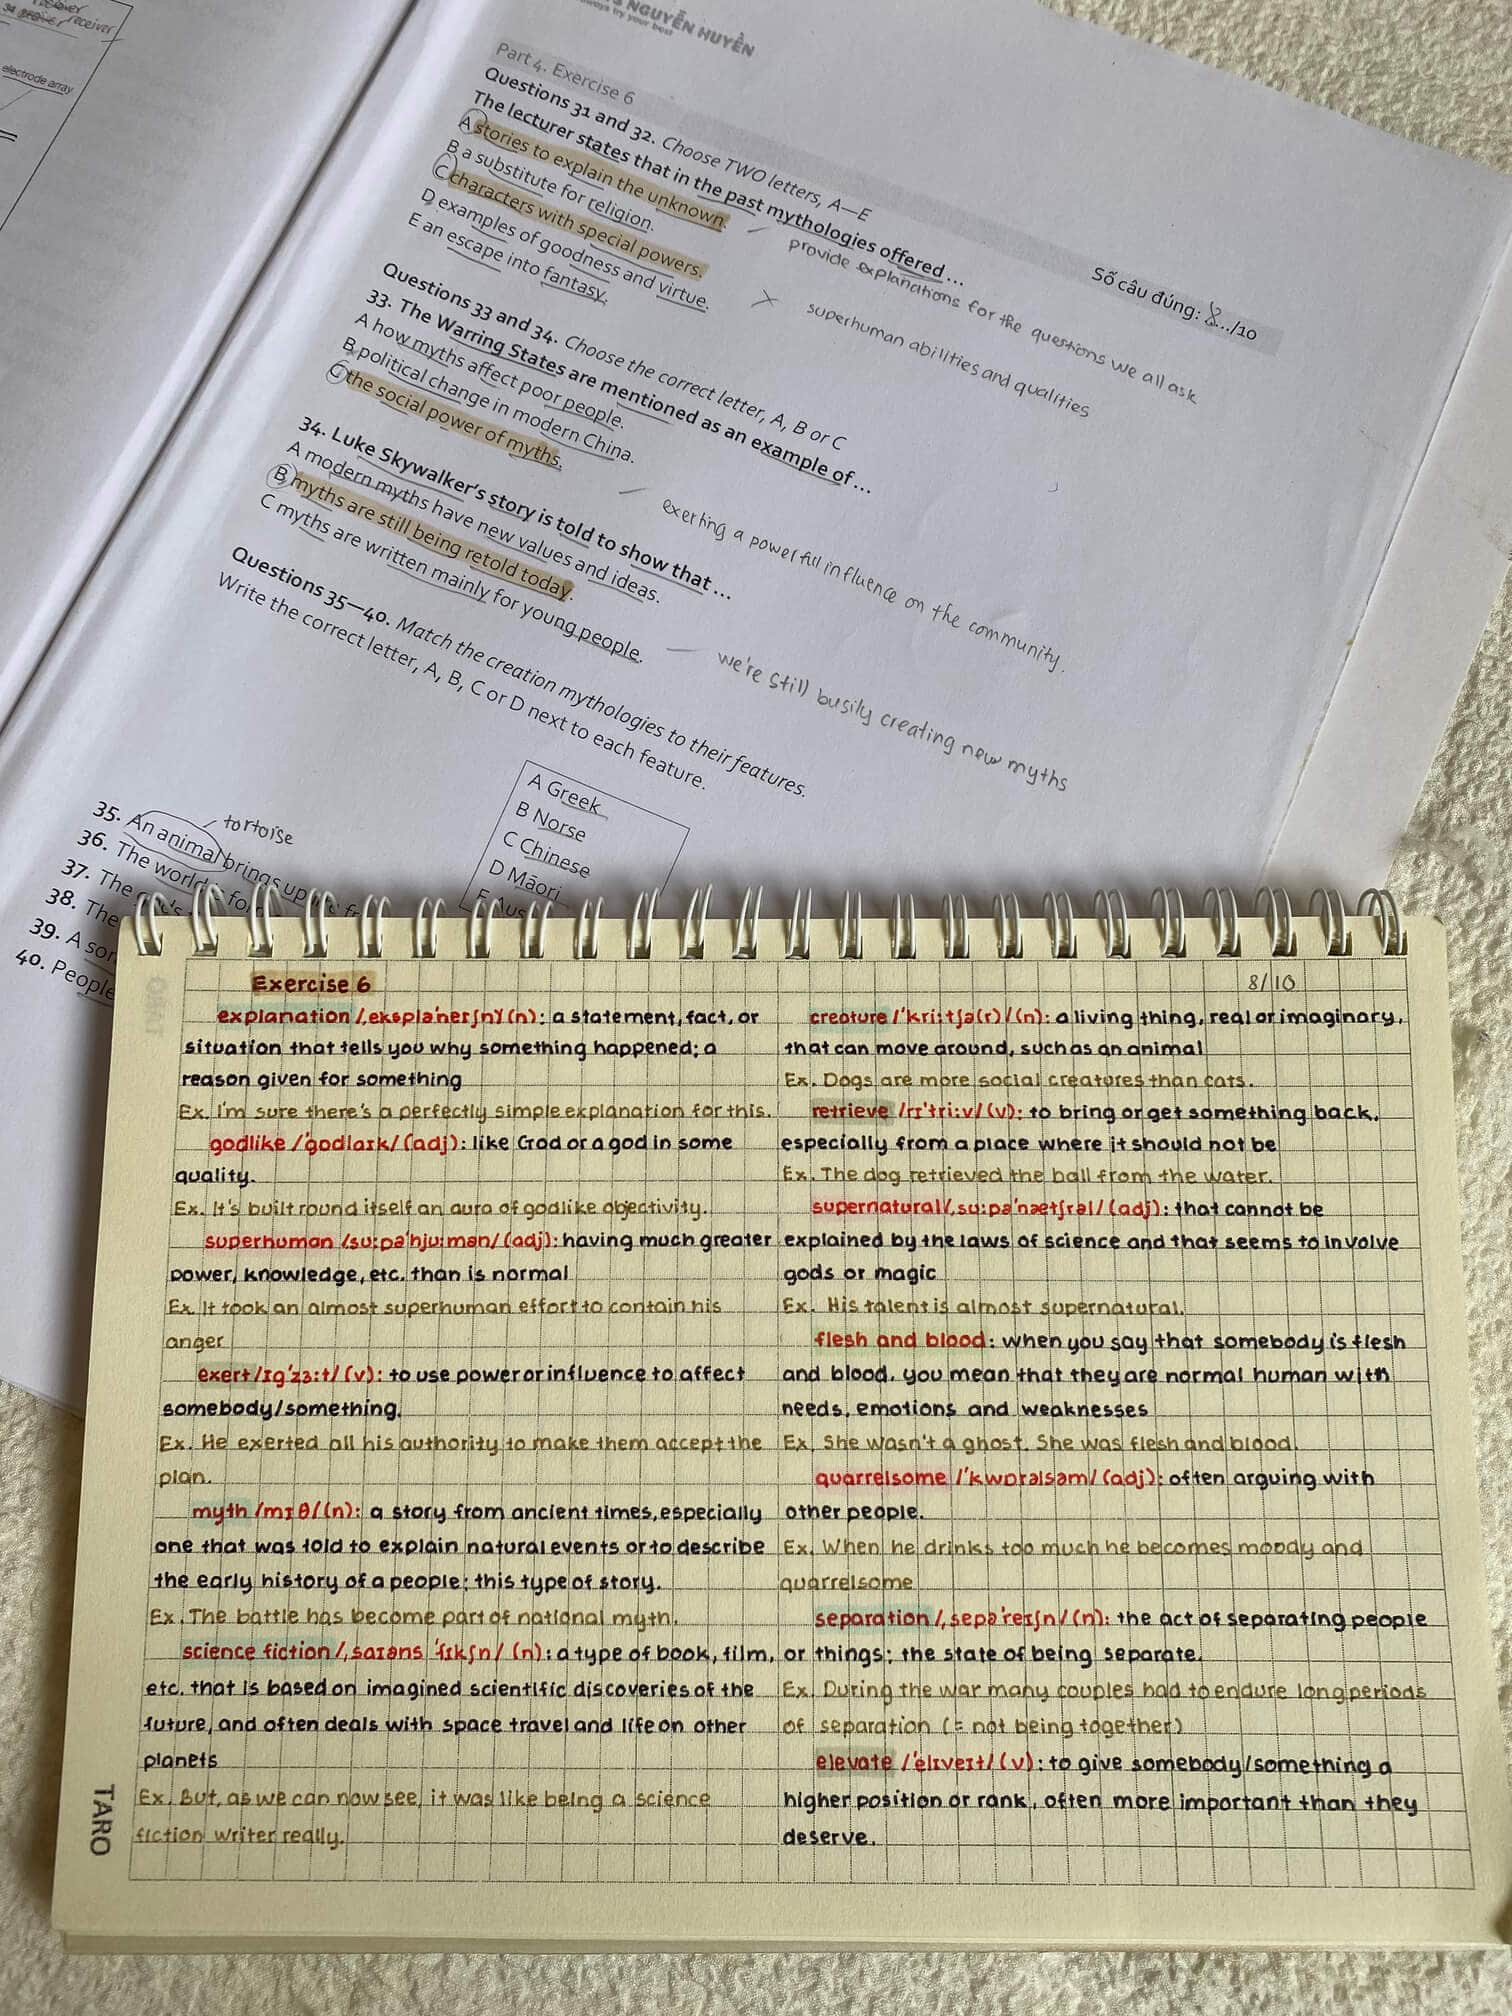 receiver
electrode array
NGUYỄN HUYỀN
always try your best
Part 4. Exercise 6
Số câu đúng: 8.../10
Questions 31 and 32. Choose TWO letters, A—E
The lecturer states that in the past mythologies offered ...
A stories to explain the unknown.
provide explanations for the questions we all ask
B a substitute for religion.
C characters with special powers.
superhuman abilities and qualities
D examples of goodness and virtue.
E an escape into fantasy.
Questions 33 and 34. Choose the correct letter, A, B or C
33. The Warring States are mentioned as an example of ...
A how myths affect poor people.
B political change in modern China.
C the social power of myths.
exerting a powerful influence on the community.
34. Luke Skywalker's story is told to show that ...
A modern myths have new values and ideas.
B myths are still being retold today.
C myths are written mainly for young people.
we're still busily creating new myths
Questions 35—40. Match the creation mythologies to their features.
Write the correct letter, A, B, C or D next to each feature.
A Greek
B Norse
C Chinese
D Māori
E Aus
tortoise
35. An animal brings up
36. The world
37. The
38. The
39. A
40. People
Exercise 6
8/10
explanation /ˌekspləˈneɪʃn/ (n): a statement, fact, or
situation that tells you why something happened; a
reason given for something
Ex. I'm sure there's a perfectly simple explanation for this.
godlike /ˈɡodlaɪk/ (adj): like God or a god in some
quality.
Ex. It's built round itself an aura of godlike objectivity.
superhuman /su:pəˈhju:mən/ (adj): having much greater
power, knowledge, etc. than is normal
Ex. It took an almost superhuman effort to contain his
anger
exert /ɪɡˈzɜ:t/ (v): to use power or influence to affect
somebody/something.
Ex. He exerted all his authority to make them accept the
plan.
myth /mɪθ/ (n): a story from ancient times, especially
one that was told to explain natural events or to describe
the early history of a people; this type of story.
Ex. The battle has become part of national myth.
science fiction /ˌsaɪəns ˈfɪkʃn/ (n): a type of book, film,
etc. that is based on imagined scientific discoveries of the
future, and often deals with space travel and life on other
planets
Ex. But, as we can now see, it was like being a science
fiction writer really.
creature /ˈkri:tʃə(r)/ (n): a living thing, real or imaginary,
that can move around, such as an animal
Ex. Dogs are more social creatures than cats.
retrieve /rɪˈtri:v/ (v): to bring or get something back,
especially from a place where it should not be
Ex. The dog retrieved the ball from the water.
supernatural /ˌsu:pəˈnætʃrəl/ (adj): that cannot be
explained by the laws of science and that seems to involve
gods or magic
Ex. His talent is almost supernatural.
flesh and blood: when you say that somebody is flesh
and blood, you mean that they are normal human with
needs, emotions and weaknesses
Ex. She wasn't a ghost. She was flesh and blood.
quarrelsome /ˈkwɒrəlsəm/ (adj): often arguing with
other people.
Ex. When he drinks too much he becomes moody and
quarrelsome
separation /ˌsepəˈreɪʃn/ (n): the act of separating people
or things; the state of being separate.
Ex. During the war many couples had to endure long periods
of separation (= not being together)
elevate /ˈelɪveɪt/ (v): to give somebody/something a
higher position or rank, often more important than they
deserve.
TARO